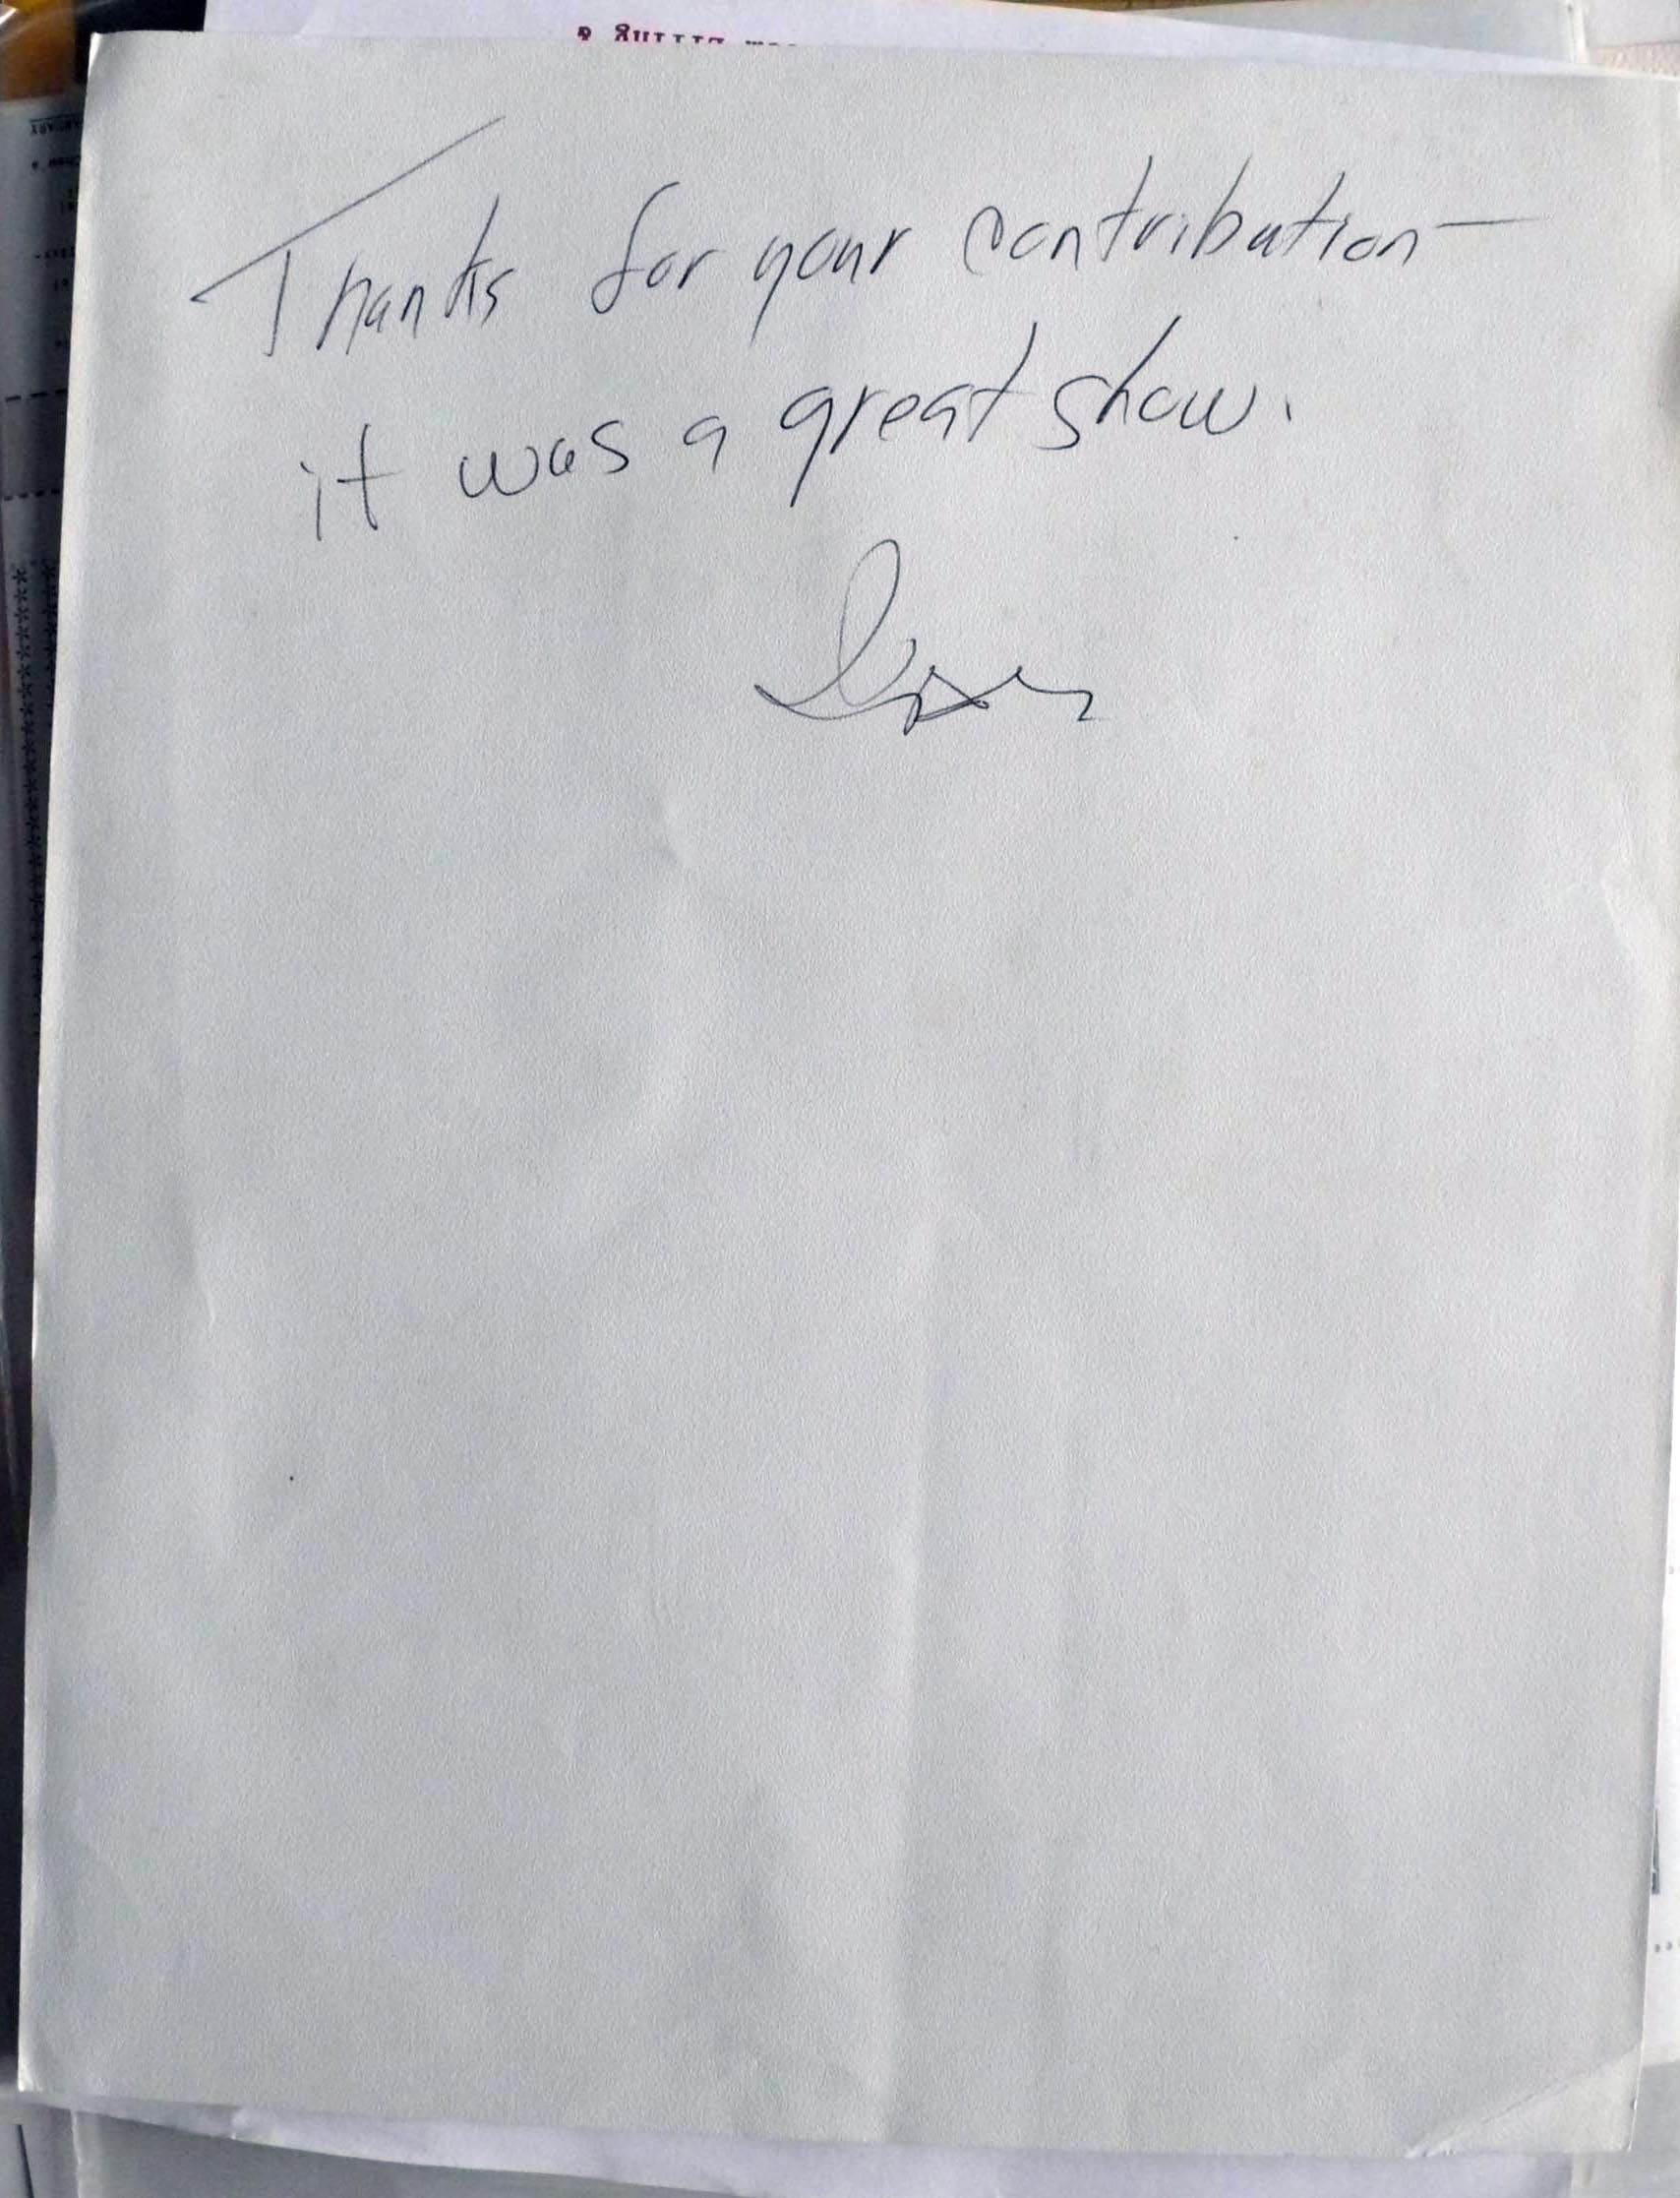 Thanks for your contribution—
it was a great show.